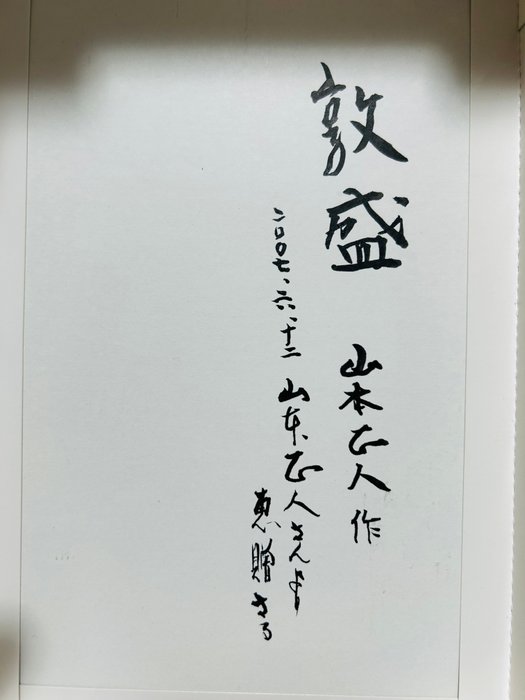 敦盛 山本正人作
二〇〇七、六、十二 山本正人さんより
恵贈さる